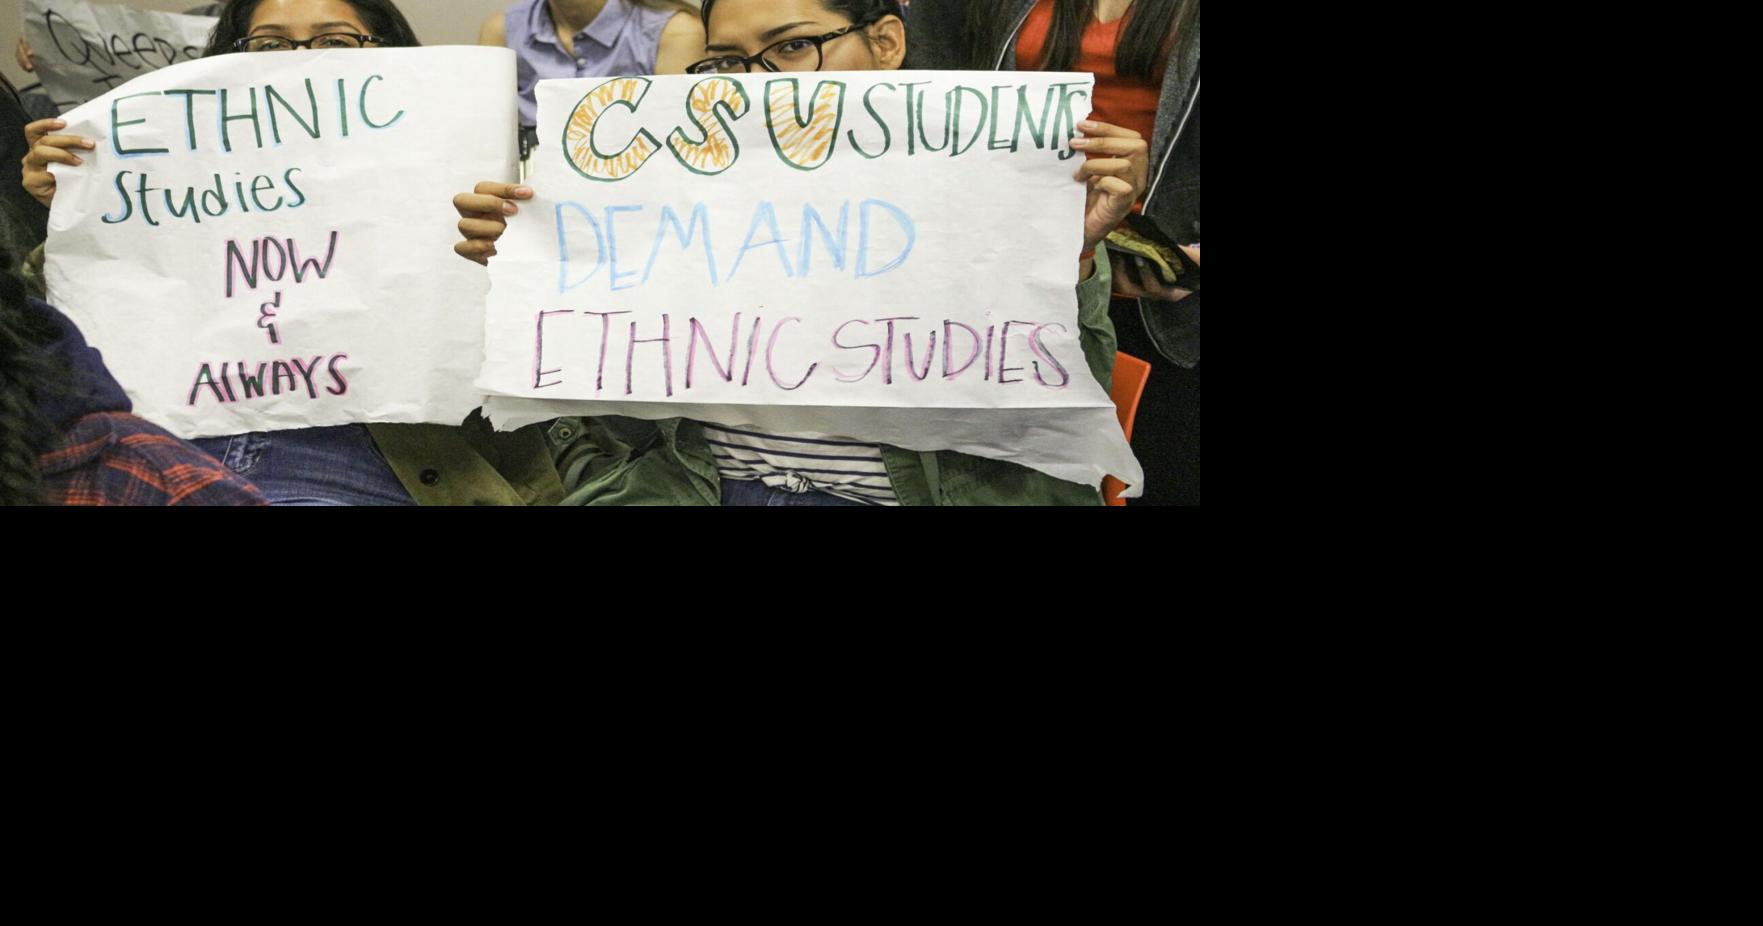 Queers
ETHNIC
Studies
NOW
&
AlWAYS
CSU STUDENTS
DEMAND
ETHNIC STUDIES